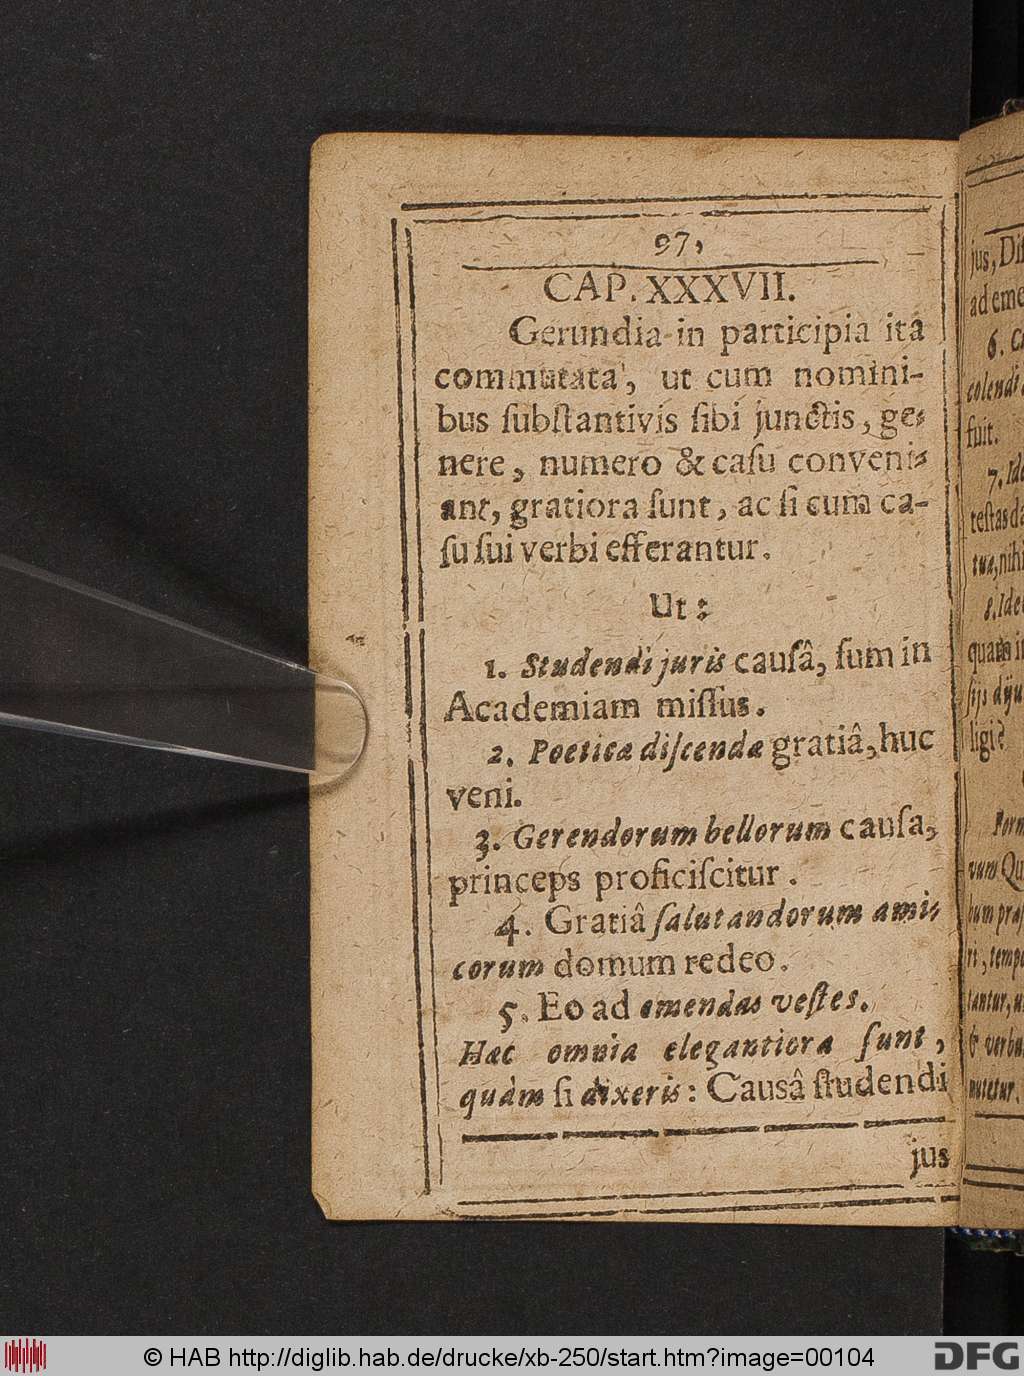 97,
CAP. XXXVII.
Gerundia in participia ita
commutata, ut cum nomini-
bus ſubſtantivis ſibi junctis, ge-
nere, numero & caſu conveni-
ant, gratiora ſunt, ac ſi cum ca-
ſu ſui verbi efferantur.
Ut:
1. Studendi juris cauſâ, ſum in
Academiam miſſus.
2. Poeticæ diſcendæ gratiâ, huc
veni.
3. Gerendorum bellorum cauſa,
princeps proficiſcitur.
4. Gratiâ ſalutandorum ami-
corum domum redeo.
5. Eo ad emendas veſtes.
Hæc omnia elegantiora ſunt,
quàm ſi dixeris: Causâ ſtudendi
jus
jus, Di
ad eme
6.
colendi
fuit.
7. Id
teſtas d
tua, nihi
8. Ide
quam i
ſijs
ligi?
vum Qu
bum præ
ri, temp
tantur, u
& verbu
mutetur.
© HAB http://diglib.hab.de/drucke/xb-250/start.htm?image=00104
DFG